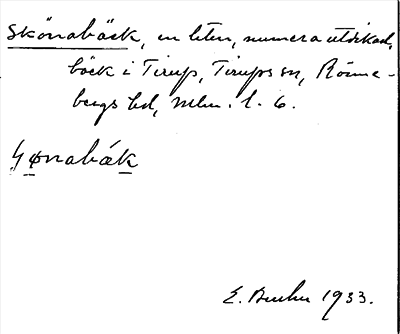 Skönabäck, en liten, numera utdikad,
bäck i Tirup, Tirups sn, Rönne-
bergs hd, Mlm. l. 6.
ɧønabǽk
E. 1933.